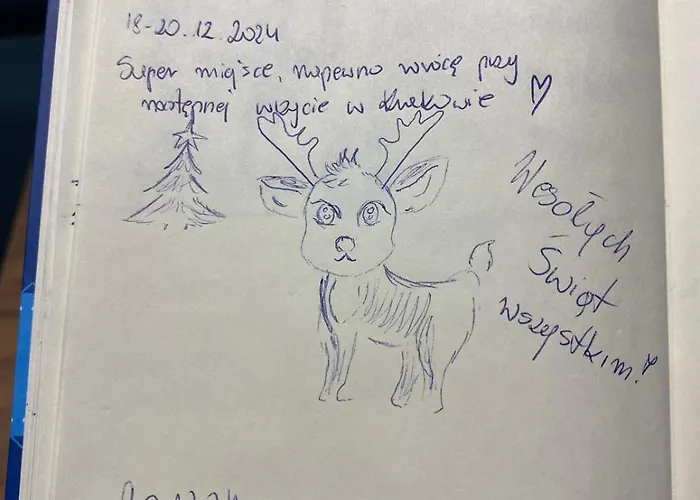 18-20.12.2024
Super miejsce, napewno wrócę przy
następnej wizycie w Krakowie ♡
Wesołych
Świąt
wszystkim!